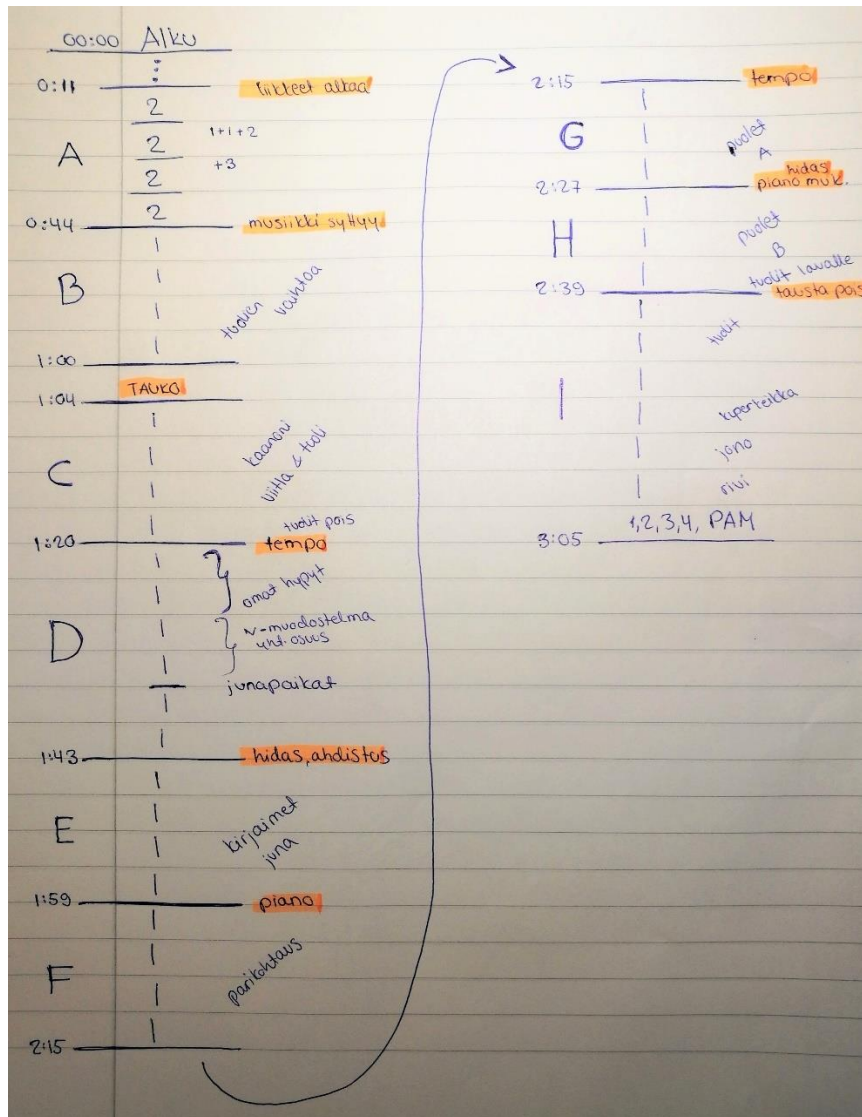 00:00 Alku
0:11 liikkeet alkaa
2
A 2 1+1+2
2 +3
2
0:44 musiikki syttyy
B
tuolien vaihtoa
1:00
TAUKO
1:04
kaanoni
C viitta & tuoli
tuolit pois
1:20 tempo
omat hypyt
D v-muodostelma
yht.osuus
junapaikat
1:43 hidas, ahdistus
E kirjaimet
juna
1:59 piano
F parikohtaus
2:15
2:15 tempo
G puolet
A
hidas
2:27 piano muk.
H puolet
B
tuolit lavalle
2:39 tausta pois
tuolit
I kuperkeikka
jono
rivi
1,2,3,4, PAM
3:05